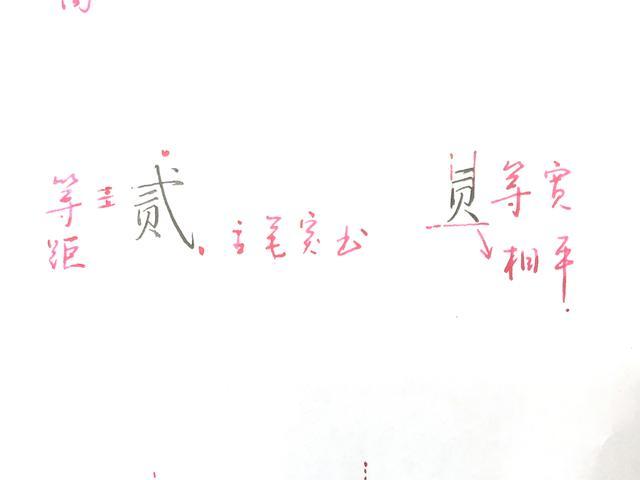 等 贰
距
主笔突出
等宽
相平